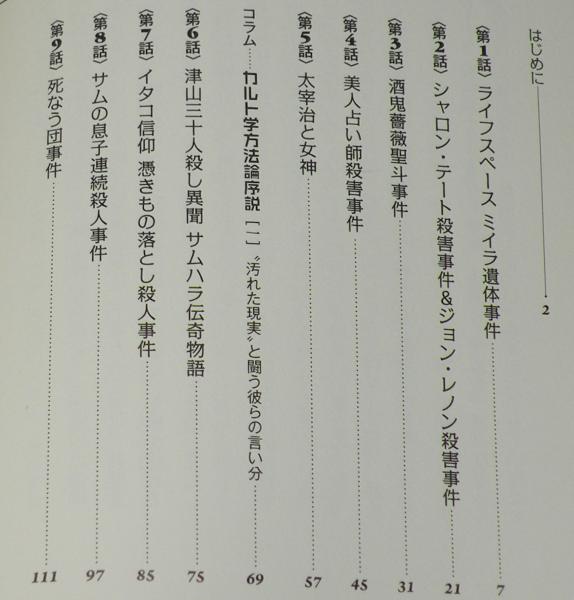 はじめに 2
〈第1話〉ライフスペース ミイラ遺体事件 7
〈第2話〉シャロン・テート殺害事件&ジョン・レノン殺害事件 21
〈第3話〉酒鬼薔薇聖斗事件 31
〈第4話〉美人占い師殺害事件 45
〈第5話〉太宰治と女神 57
コラム……カルト学方法論序説［一］〝汚れた現実〟と闘う彼らの言い分 69
〈第6話〉津山三十人殺し異聞 サムハラ伝奇物語 75
〈第7話〉イタコ信仰 憑きもの落とし殺人事件 85
〈第8話〉サムの息子連続殺人事件 97
〈第9話〉死なう団事件 111